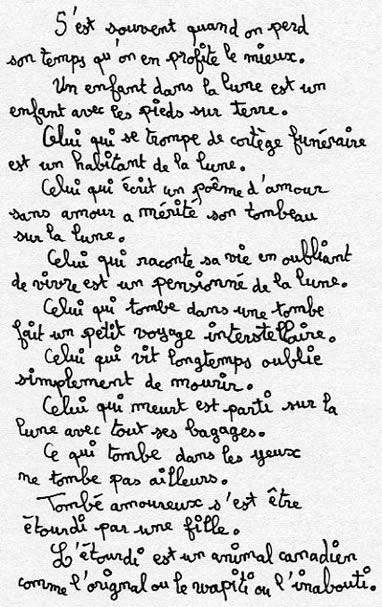 S'est souvent quand on perd
son temps qu'on en profite le mieux.
Un enfant dans la lune est un
enfant avec les pieds sur terre.
Celui qui se trompe de cortège funéraire
est un habitant de la lune.
Celui qui écrit un poême d'amour
sans amour a mérité son tombeau
sur la lune.
Celui qui raconte sa vie en oubliant
de vivre est un pensionné de la lune.
Celui qui tombe dans une tombe
fait un petit voyage interstellaire.
Celui qui vit longtemps oublie
simplement de mourir.
Celui qui meurt est parti sur la
lune avec tout ses bagages.
Ce qui tombe dans les yeux
ne tombe pas ailleurs.
Tombé amoureux s'est être
étourdi par une fille.
L'étourdi est un animal canadien
comme l'orignal ou le wapiti ou l'inabouti.